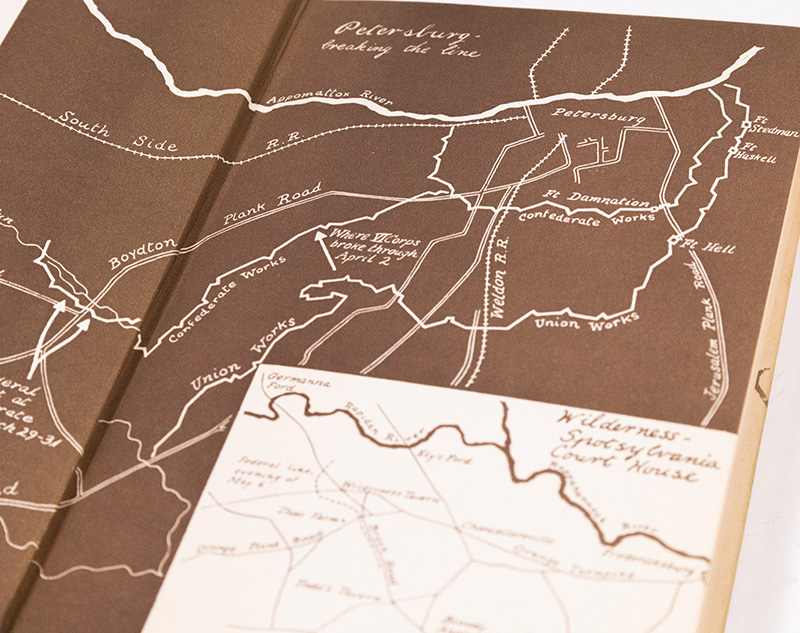 Petersburg-
breaking the line
Appomattox River
Petersburg
South Side
R.R.
Ft
Stedman
Ft
Haskell
Boydton
Plank Road
Ft Damnation
Confederate Works
Where VI Corps
broke through
April 2
Weldon R.R.
Ft Hell
Confederate Works
Union Works
Union Works
Jerusalem Plank Road
Germanna
Ford
Rapidan River
Ely's Ford
Wilderness-
Spotsylvania
Court House
Federal line,
evening of
May 6
Wilderness Tavern
Chancellorsville
Orange Turnpike
Rappahannock River
Fredericksburg
Orange Plank Road
Brock Road
Todd's Tavern